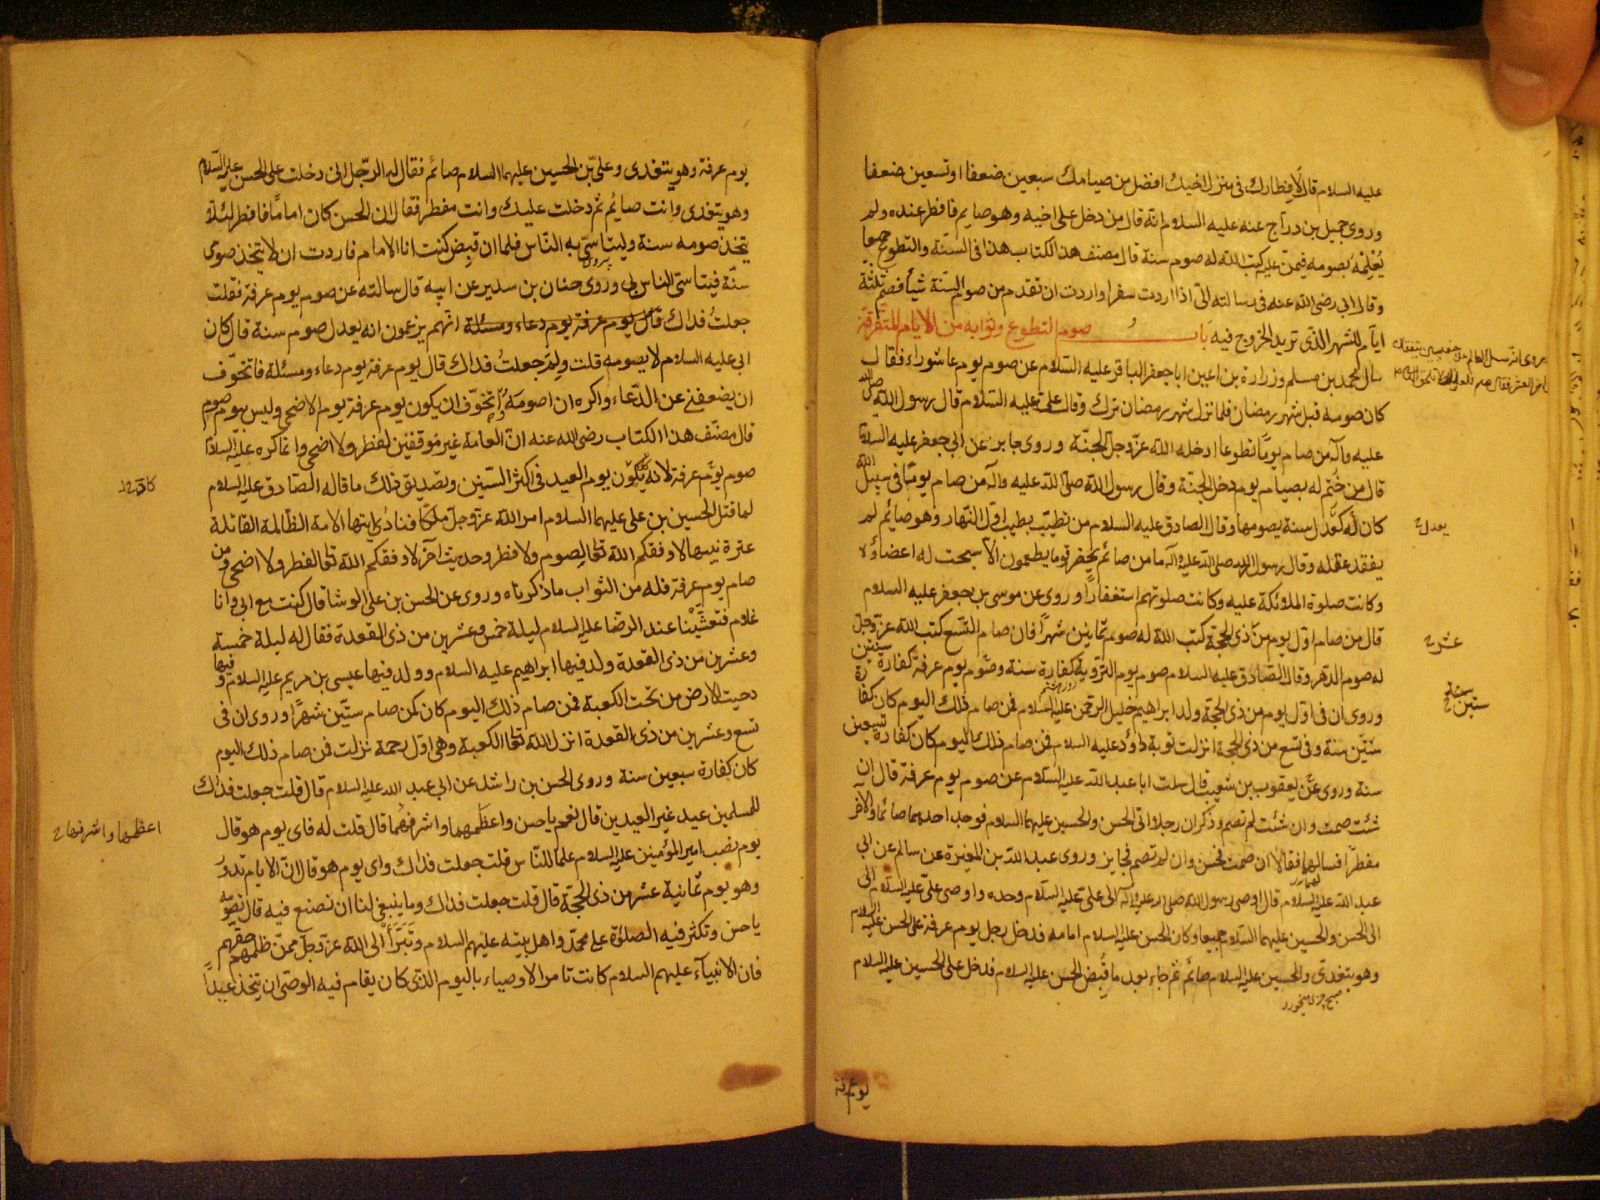 عليه السلام قال لافطارك فى منزل اخيك افضل من صيامك سبعين ضعفا او تسعين ضعفا
وروى جميل بن دراج عنه عليه السلام انه قال من دخل على اخيه وهو صايم فافطر عنده ولم
يُعْلِمْهُ بصومه فيمن عليه كتب الله له صوم سنة قال مصنف هذا الكتاب هذا فى السنّة والتطوع جميعا
وقال لى ابى رضى الله عنه فى رسالته الىّ اذا اردت سفرا واردت ان تقدم من صوم السنة شيأ فصم ثلثة
ايام للشهر الذى تريد الخروج فيه باب صوم التطوع وثوابه من الايام المتفرقة
سال محمد بن مسلم وزرارة بن اعين ابا جعفر الباقر عليه السلام عن صوم يوم عاشوراء فقال
كان صومه قبل شهر رمضان فلما نزل شهر رمضان ترك وقال على عليه السلام قال رسول الله صلى الله
عليه وآله من صام يومًا تطوعا ادخله الله عز وجل الجنّة وروى جابر عن ابى جعفر عليه السلام
قال من خُتم له بصيام يوم دخل الجنة وقال رسول الله صلى الله عليه وآله من صام يومًا فى سبيل الله
كان له كعدل سنة يصومها وقال الصادق عليه السلام من تطيّب بطيب اول النهار وهو صايم لم
يفقد عقله وقال رسول الله صلى الله عليه وآله ما من صائم يحضر قوما يطعمون الا سبحت له اعضاؤه
وكانت صلوة الملائكة عليه وكانت صلوتهم استغفارًا وروى عن موسى بن جعفر عليه السلام
قال من صام اول يوم من ذى الحجة كتب الله له صوم ثمانين شهرًا فان صام التسع كتب الله عز وجل
له صوم الدهر وقال الصادق عليه السلام صوم يوم التروية كفارة سنة وصوم يوم عرفة كفارة سنتين
وروى ان فى اول يوم من ذى الحجة ولد ابراهيم خليل الرحمن عليه السلام فمن صام ذلك اليوم كان كفارة
ستين سنة وفى تسع من ذى الحجة انزلت توبة داود عليه السلام فمن صام ذلك اليوم كان كفارة تسعين
سنة وروى عن يعقوب بن شعيب قال سالت ابا عبد الله عليه السلام عن صوم يوم عرفة قال ان
شئت صمت وان شئت لم تصم وذكر ان رجلا اتى الحسن والحسين عليهما السلام فوجد احدهما صائما والآخر
مفطرًا فسالهما فقالا ان صمت فحسن وان لم تصم فجايز وروى عبد الله بن المغيرة عن سالم عن ابى
عبد الله عليه السلام قال اوصى رسول الله صلى الله عليه وآله الى على عليه السلام وحده واوصى على عليه السلام
الى الحسن والحسين عليهما السلام جميعا وكان الحسن عليه السلام امامه فدخل رجل يوم عرفة على الحسن عليه السلام
وهو يتغدى والحسين عليه السلام صائم ثم جاء بعد ما قُبض الحسن عليه السلام فدخل على الحسين عليه السلام
يوم عرفة
يعدل
عشر
سنة
سنتين
يوم عرفة وهو يتغدى وعلى بن الحسين عليهما السلام صائم فقال له الرجل انى دخلت على الحسن عليه السلام
وهو يتغدى وانت صائم ثم دخلت عليك وانت مفطر فقال ان الحسن كان امامًا فافطر لئلا
يتخذ صومه سنة وليتاسّى به الناس فلما ان قبض كنت انا الامام فاردت ان لا يتخذ صومى
سنّة فيتاسّى الناس بى وروى حنان بن سدير عن ابيه قال سالته عن صوم يوم عرفة فقلت
جعلتُ فداك قال يوم عرفة يوم دعاء ومسئلة انهم يزعمون انه يعدل صوم سنة قال كان
ابى عليه السلام لا يصومه قلت ولِمَ جعلتُ فداك قال يوم عرفة يوم دعاء ومسئلة فاتخوّف
ان يضعفنى عن الدعاء واكره ان اصومه واتخوّف ان يكون يوم عرفة يوم الاضحى وليس بيوم صوم
قال مصنف هذا الكتاب رضى الله عنه ان العامة غير موفقين لفطر ولا اضحى وانما كره عليه السلام
صوم يوم عرفة لانه يكون يوم العيد فى اكثر السنين وتصديق ذلك ما قاله الصادق عليه السلام
لما قتل الحسين بن على عليهما السلام امر الله عز وجل ملكًا فنادى ايتها الامة الظالمة القاتلة
عترة نبيها لا وفقكم الله تعالى لصوم ولا فطر وحديث آخر لا وفقكم الله تعالى لفطر ولا اضحى ومن
صام يوم عرفة فله من الثواب ما ذكرناه وروى عن الحسن بن على الوشا قال كنت مع ابى وانا
غلام فتعشّينا عند الرضا عليه السلام ليلة خمس وعشرين من ذى القعدة فقال له ليلة خمسة
وعشرين من ذى القعدة ولد فيها ابراهيم عليه السلام وولد فيها عيسى بن مريم عليه السلام وفيها
دحيت الارض من تحت الكعبة فمن صام ذلك اليوم كان كمن صام ستّين شهرًا وروى ان فى
تسع وعشرين من ذى القعدة انزل الله تعالى الكعبة وهى اول رحمة نزلت فمن صام ذلك اليوم
كان كفارة سبعين سنة وروى الحسن بن راشد عن ابى عبد الله عليه السلام قال قلت جعلت فداك
للمسلمين عيد غير العيدين قال نعم يا حسن واعظمهما واشرفهما قال قلت له فاى يوم هو قال
يوم نصب امير المؤمنين عليه السلام علما للناس قلت جعلت فداك واى يوم هو قال ان الايام تدور
وهو يوم ثمانية عشر من ذى الحجة قال قلت جعلت فداك وما ينبغى لنا ان نصنع فيه قال تصومه
يا حسن وتكثر فيه الصلوة على محمد واهل بيته عليهم السلام وتبرّأ الى الله عز وجل ممن ظلمهم حقهم
فان الانبياء عليهم السلام كانت تامر الاوصياء باليوم الذى كان يقام فيه الوصى ان يتخذ عيدًا
اعظمها واشرفها